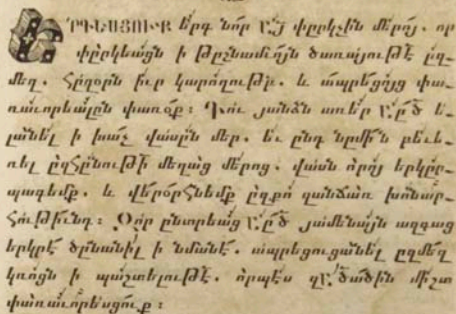 ԵՐԳԵՍՑՈՒՔ երգ նոր Ա՟Յ փըրկչին մերոյ, որ
փըրկեացն ի թըշնամւոյն ծառայութէ՟ ըզ-
մեզ. հըզօրն իւր կարողութբ՟. և ապրեցոյց փա-
ռաւորեալըն փառօք։ Դու յանձն առեր Ա՟րծ ե-
լանել ի խաչ վասըն մեր. եւ ընդ նըմին բևե-
ռել ըզհընութի՟ մեղաց մերոց. վասն որոյ երկըր-
պագեմք. և վերօրհնեմք ըզքո զանճառ խոնար-
հութիւնդ։ Որ ընտրեաց Ա՟րծ յամենայն ազգաց
երկրէ ծընանիլ ի նմանէ. ապրեցուցանել ըզմեզ
կռոցն ի պաշտելութէ՟. որպէս զԱ՟ծածին միշտ
փառաւորեսցուք։